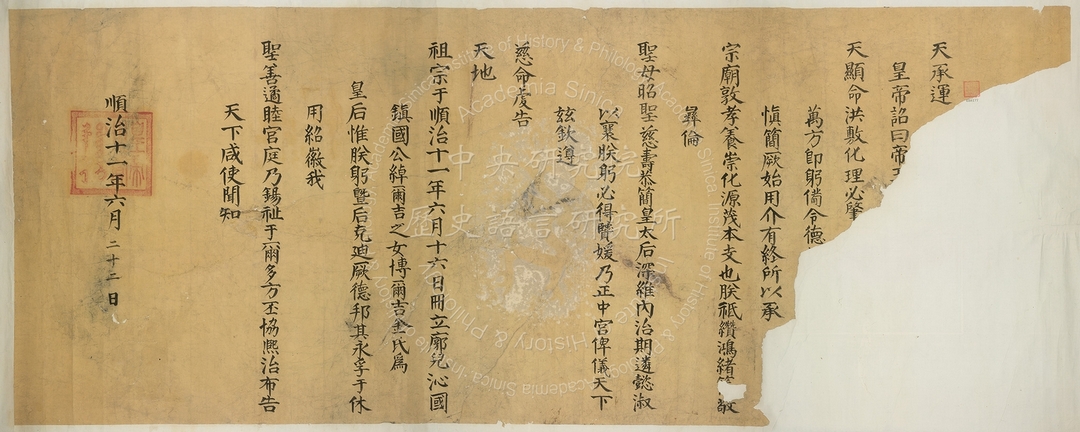 天承運
皇帝詔曰帝
天顯命洪敷化理必肇
萬方卽躬備令德
慎簡厥始用介有終所以承
宗廟敦孝養崇化源茂本支也朕祗纘鴻緒敬
彝倫
聖母昭聖慈壽恭簡皇太后深維內治期遴懿淑
以襄朕躬必得賢媛乃正中宮俾儀天下
玆欽遵
慈命虔告
天地
祖宗于順治十一年六月十六日冊立廓兒沁國
鎮國公綽爾吉之女博爾吉金氏爲
皇后惟朕躬暨后克迪厥德邦其永孚于休
用紹徽我
聖善遹睦宮庭乃錫祉于爾多方丕協熙治布告
天下咸使聞知
順治十一年六月二十二日
中央研究院
歷史語言研究所
Institute of History & Philology
Academia Sinica